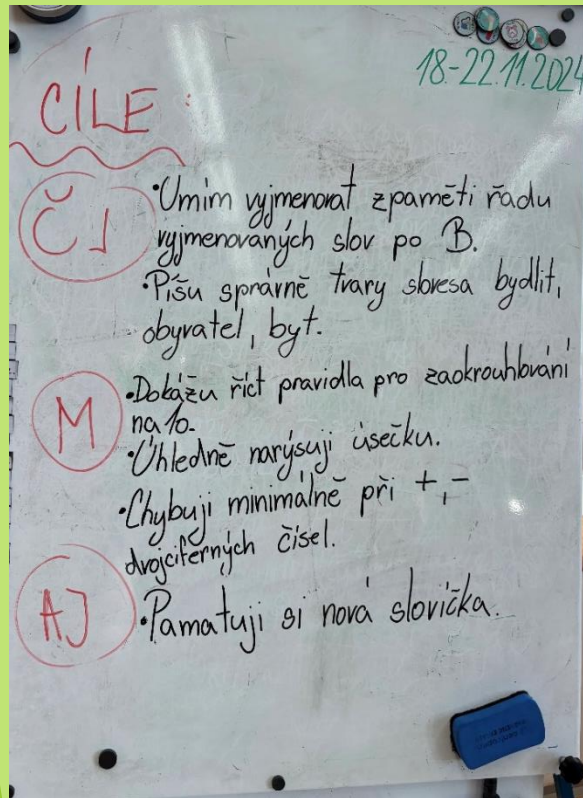 18.-22.11.2024
CÍLE:
ČJ
•Umím vyjmenovat zpaměti řadu
vyjmenovaných slov po B.
•Píšu správně tvary slovesa bydlit,
obyvatel, byt.
M
•Dokážu říct pravidla pro zaokrouhlování
na 10.
•Úhledně narýsuji úsečku.
•Chybuji minimálně při +,-
dvojciferných čísel.
AJ
•Pamatuji si nová slovíčka.